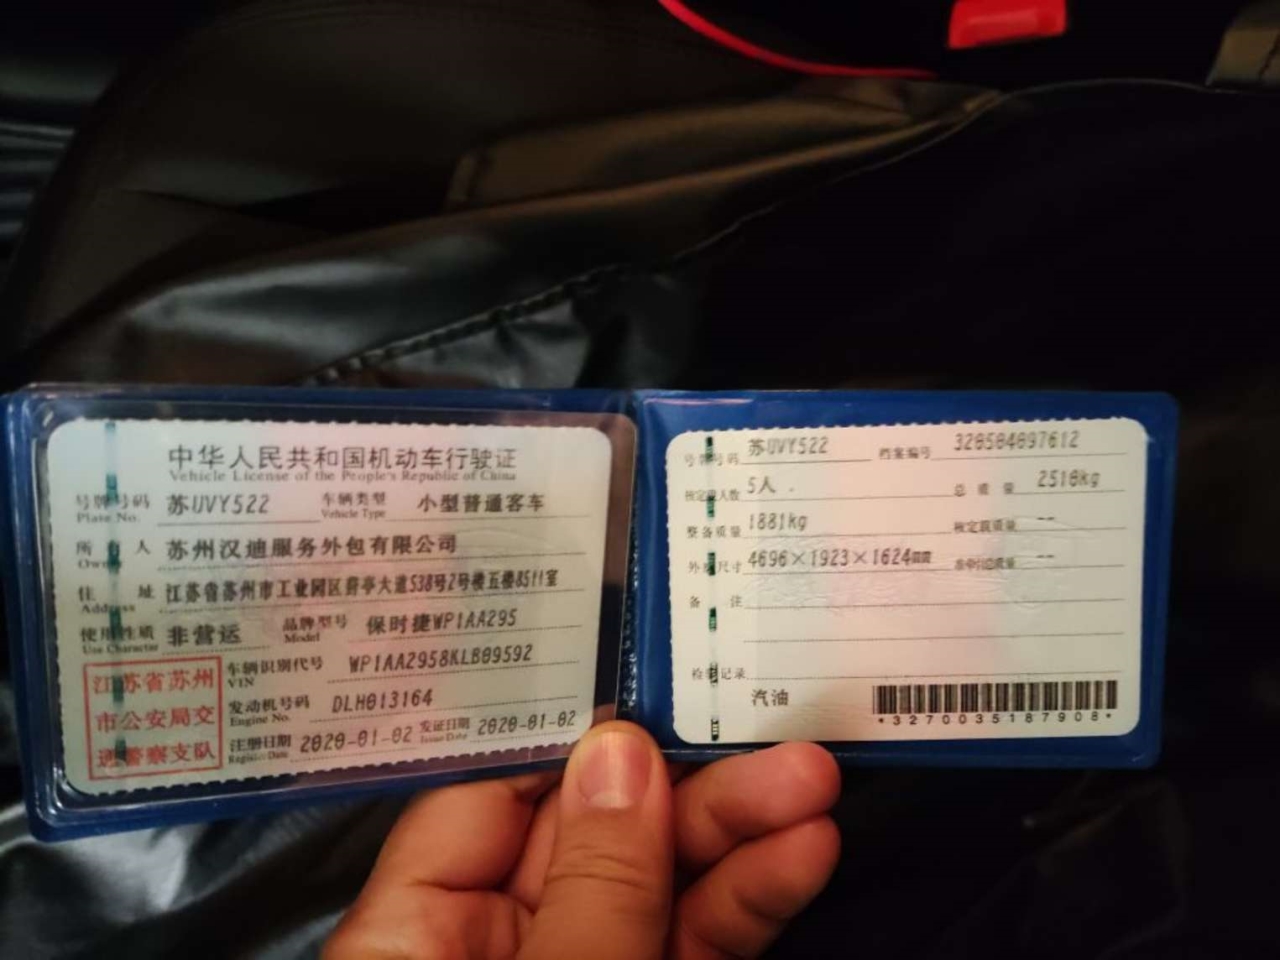 中华人民共和国机动车行驶证
Vehicle License of the People's Republic of China
号牌号码 苏UVY522 车辆类型 小型普通客车
Plate No. Vehicle Type
所有人 苏州汉迪服务外包有限公司
Owner
住址 江苏省苏州市工业园区葑亭大道538号2号楼五楼8511室
Address
使用性质 非营运 品牌型号 保时捷WP1AA295
Use Character Model
江苏省苏州
市公安局交
巡警察支队
车辆识别代号 WP1AA2958KLB09592
VIN
发动机号码 DLH013164
Engine No.
注册日期 2020-01-02 发证日期 2020-01-02
Register Date Issue Date
号牌号码 苏UVY522 档案编号 320584097612
核定载人数 5人 总质量 2510kg
整备质量 1881kg 核定载质量 --
外廓尺寸 4696×1923×1624mm --
备注
检验记录
汽油
*3270035187908*